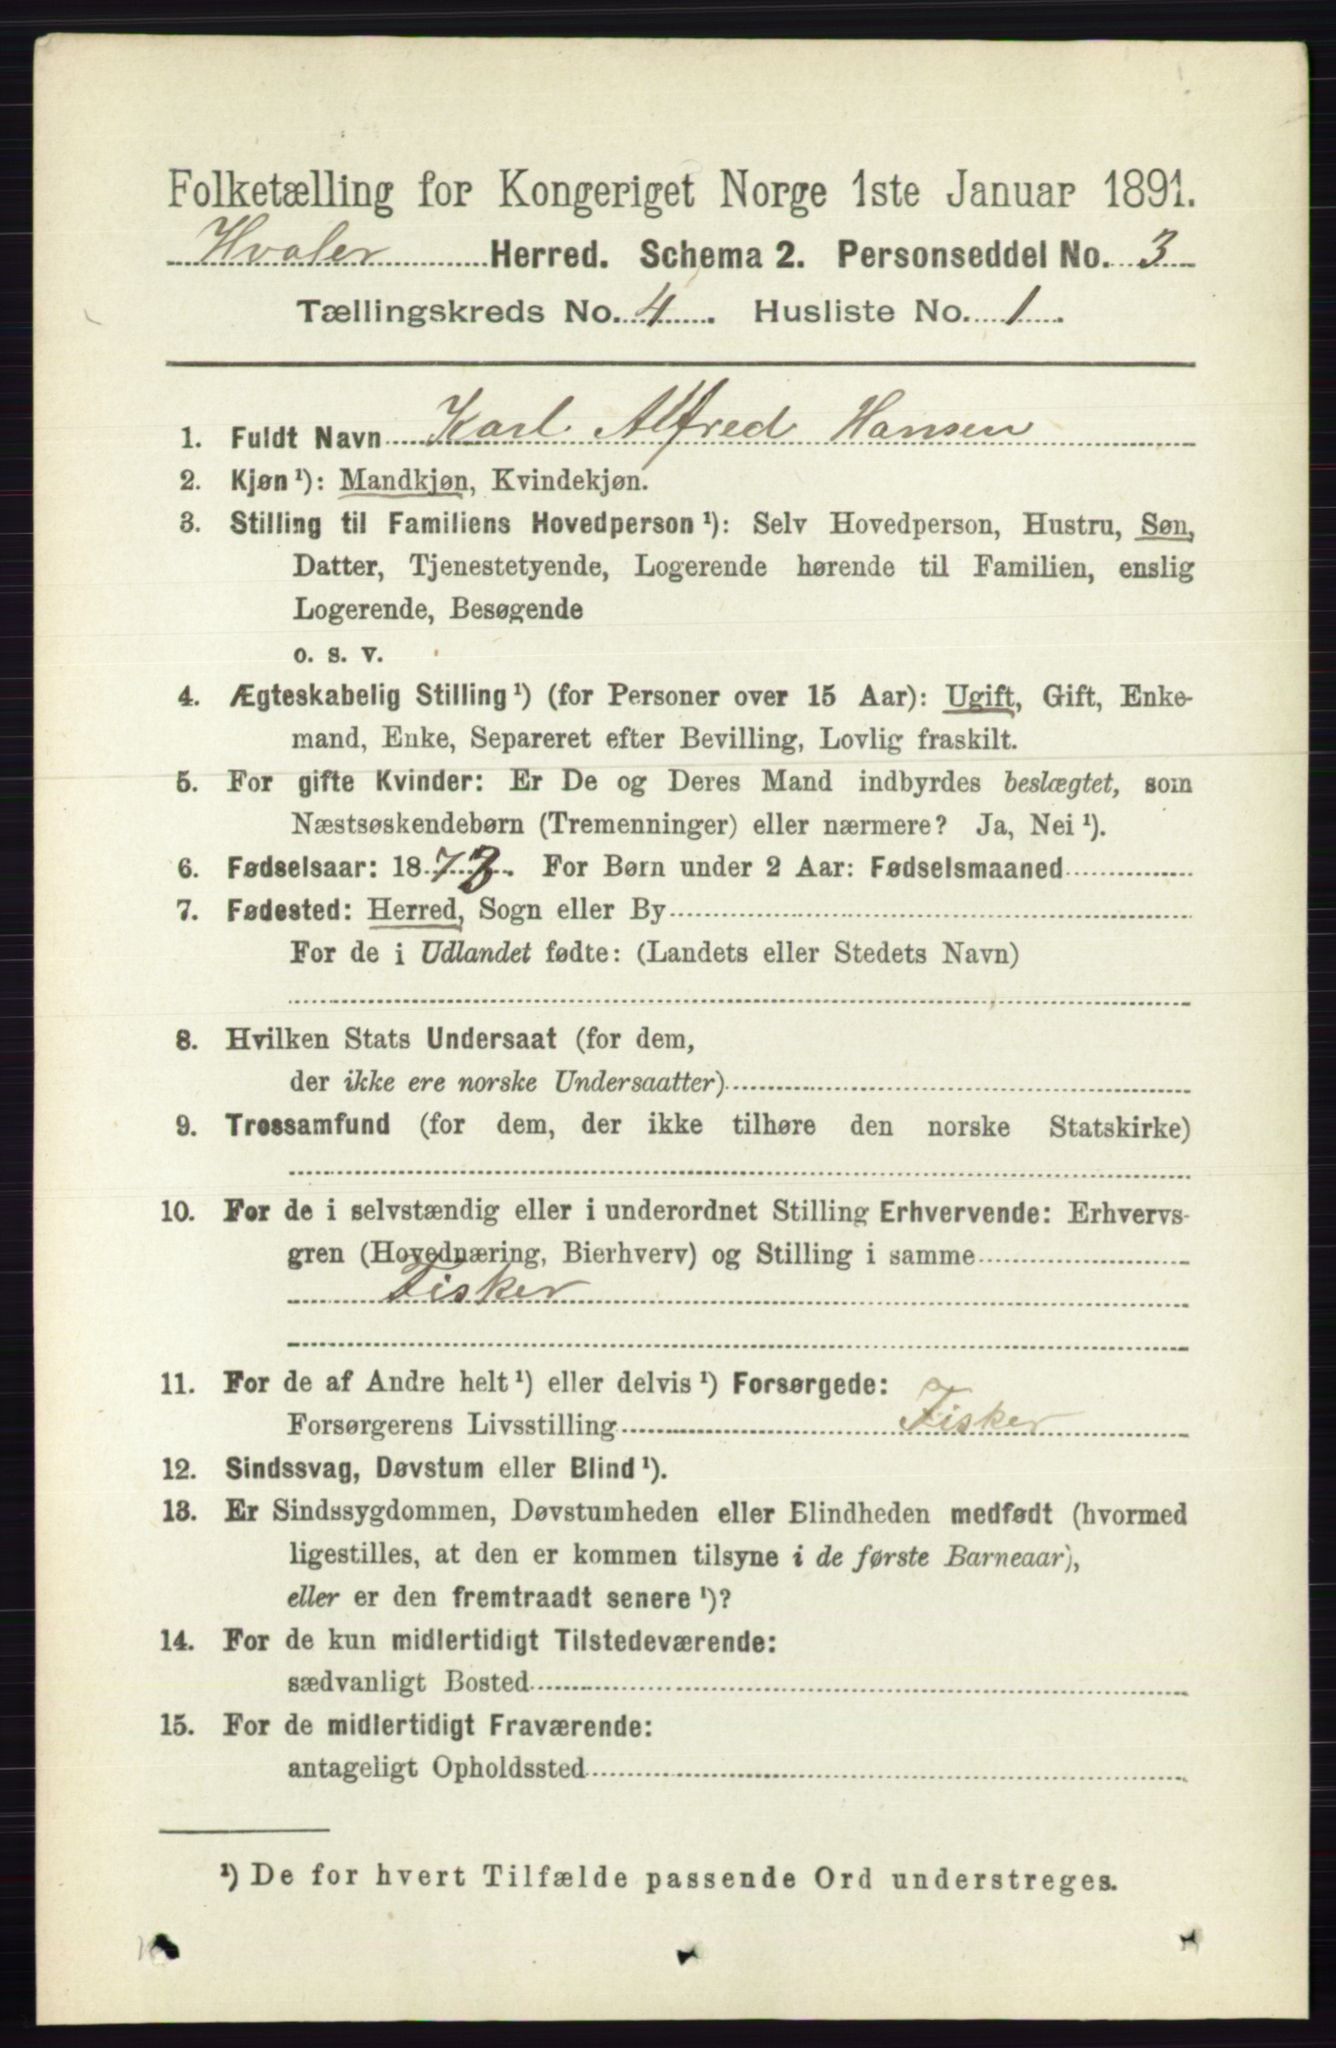 Folketælling for Kongeriget Norge 1ste Januar 1891.
Hvaler Herred. Schema 2. Personseddel No. 3
Tællingskreds No. 4. Husliste No. 1.
1. Fuldt Navn Karl Alfred Hansen
2. Kjøn¹): Mandkjøn, Kvindekjøn.
3. Stilling til Familiens Hovedperson¹): Selv Hovedperson, Hustru, Søn,
Datter, Tjenestetyende, Logerende hørende til Familien, enslig
Logerende, Besøgende
o. s. v.
4. Ægteskabelig Stilling¹) (for Personer over 15 Aar): Ugift, Gift, Enke-
mand, Enke, Separeret efter Bevilling, Lovlig fraskilt.
5. For gifte Kvinder: Er De og Deres Mand indbyrdes beslægtet, som
Næstsøskendebørn (Tremenninger) eller nærmere? Ja, Nei¹).
6. Fødselsaar: 1873. For Børn under 2 Aar: Fødselsmaaned
7. Fødested: Herred, Sogn eller By
For de i Udlandet fødte: (Landets eller Stedets Navn)
8. Hvilken Stats Undersaat (for dem,
der ikke ere norske Undersaatter)
9. Trossamfund (for dem, der ikke tilhøre den norske Statskirke)
10. For de i selvstændig eller i underordnet Stilling Erhvervende: Erhvervs-
gren (Hovednæring, Bierhverv) og Stilling i samme
Fisker
11. For de af Andre helt¹) eller delvis¹) Forsørgede:
Forsørgerens Livsstilling Fisker
12. Sindssvag, Døvstum eller Blind¹).
13. Er Sindssygdommen, Døvstumheden eller Blindheden medfødt (hvormed
ligestilles, at den er kommen tilsyne i de første Barneaar),
eller er den fremtraadt senere¹)?
14. For de kun midlertidigt Tilstedeværende:
sædvanligt Bosted
15. For de midlertidigt Fraværende:
antageligt Opholdssted
¹) De for hvert Tilfælde passende Ord understreges.